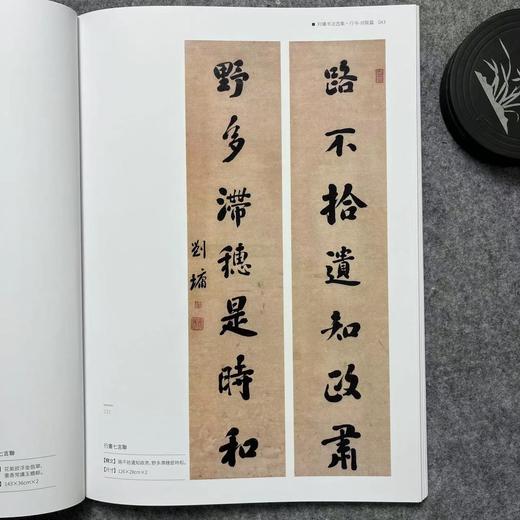 刘墉书法选集·行书·对联篇
路不拾遺知政肅
野多滯穗是時和
劉墉
行書七言聯
【釋文】路不拾遺知政肅,野多滯穗是時和。
【尺寸】126×28cm×2
七言聯
143×36cm×2